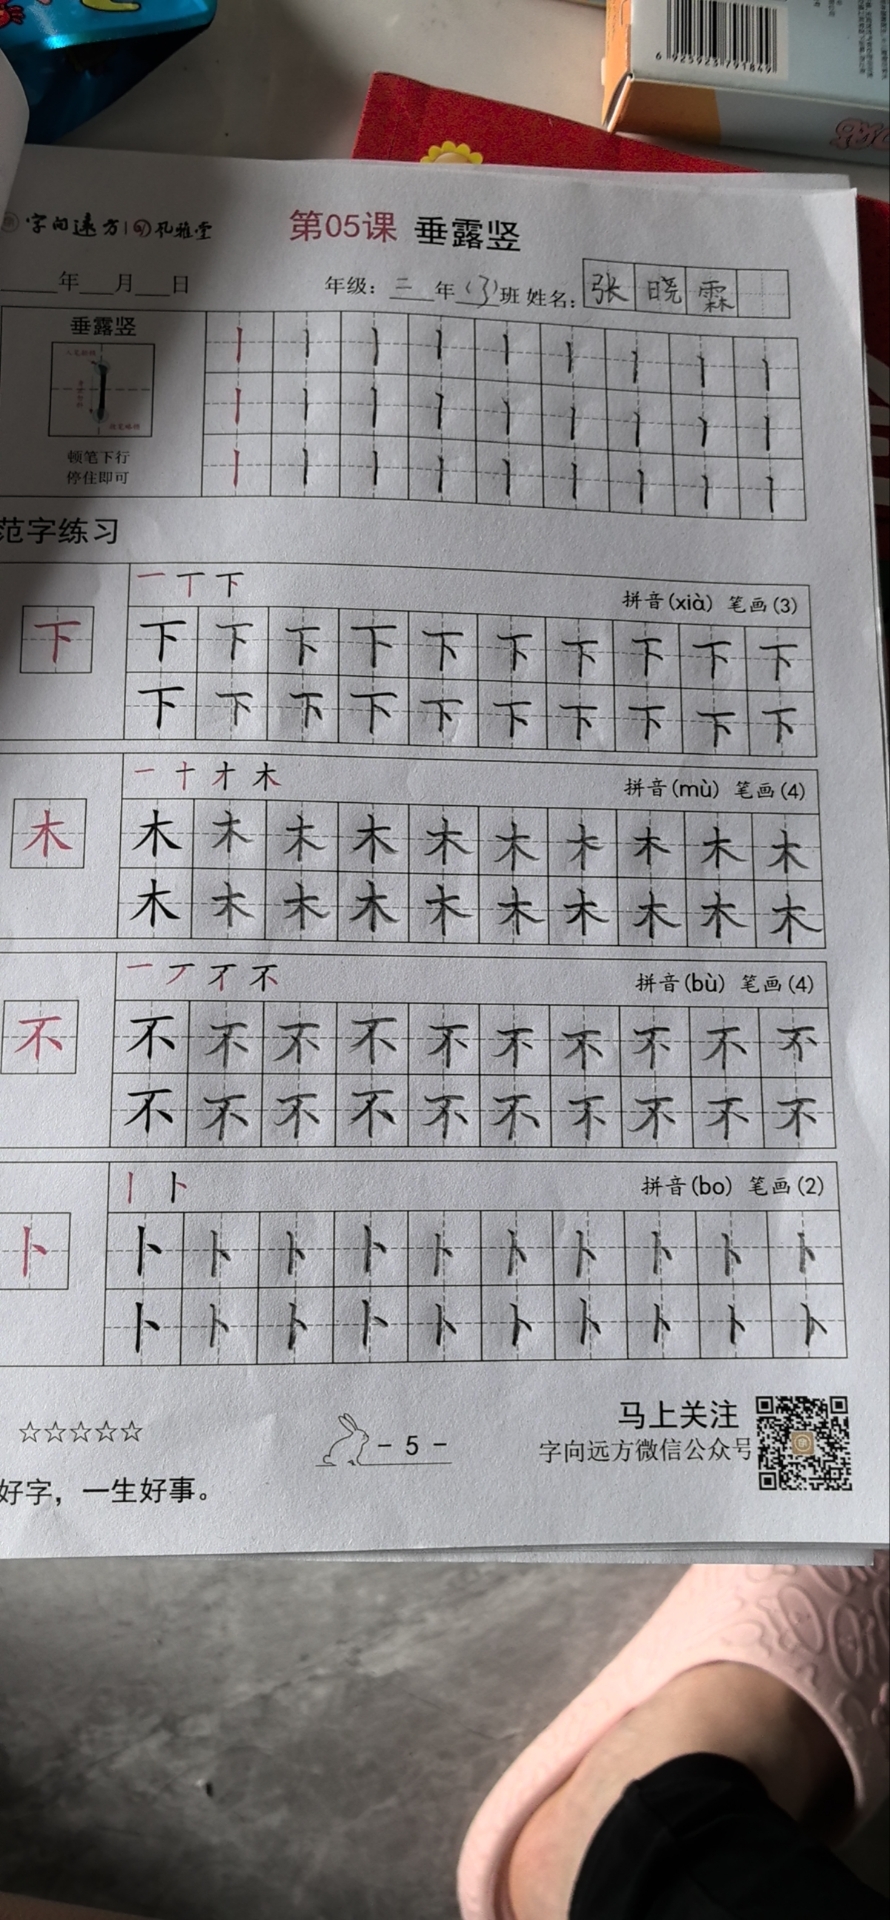 6 925923 791849
字向远方 风雅堂
第05课 垂露竖
年 月 日 年级：二 年(3)班 姓名：张晓霖
垂露竖
顿笔下行
停住即可
范字练习
一 丅 下 拼音(xià) 笔画(3)
下 下 下 下 下 下 下 下 下 下 下
下 下 下 下 下 下 下 下 下 下
一 十 才 木 拼音(mù) 笔画(4)
木 木 木 木 木 木 木 木 木 木 木
木 木 木 木 木 木 木 木 木 木
一 丆 不 不 拼音(bù) 笔画(4)
不 不 不 不 不 不 不 不 不 不 不
不 不 不 不 不 不 不 不 不 不
丨 卜 拼音(bo) 笔画(2)
卜 卜 卜 卜 卜 卜 卜 卜 卜 卜 卜
卜 卜 卜 卜 卜 卜 卜 卜 卜 卜
☆☆☆☆☆
马上关注
- 5 -
字向远方微信公众号
好字，一生好事。